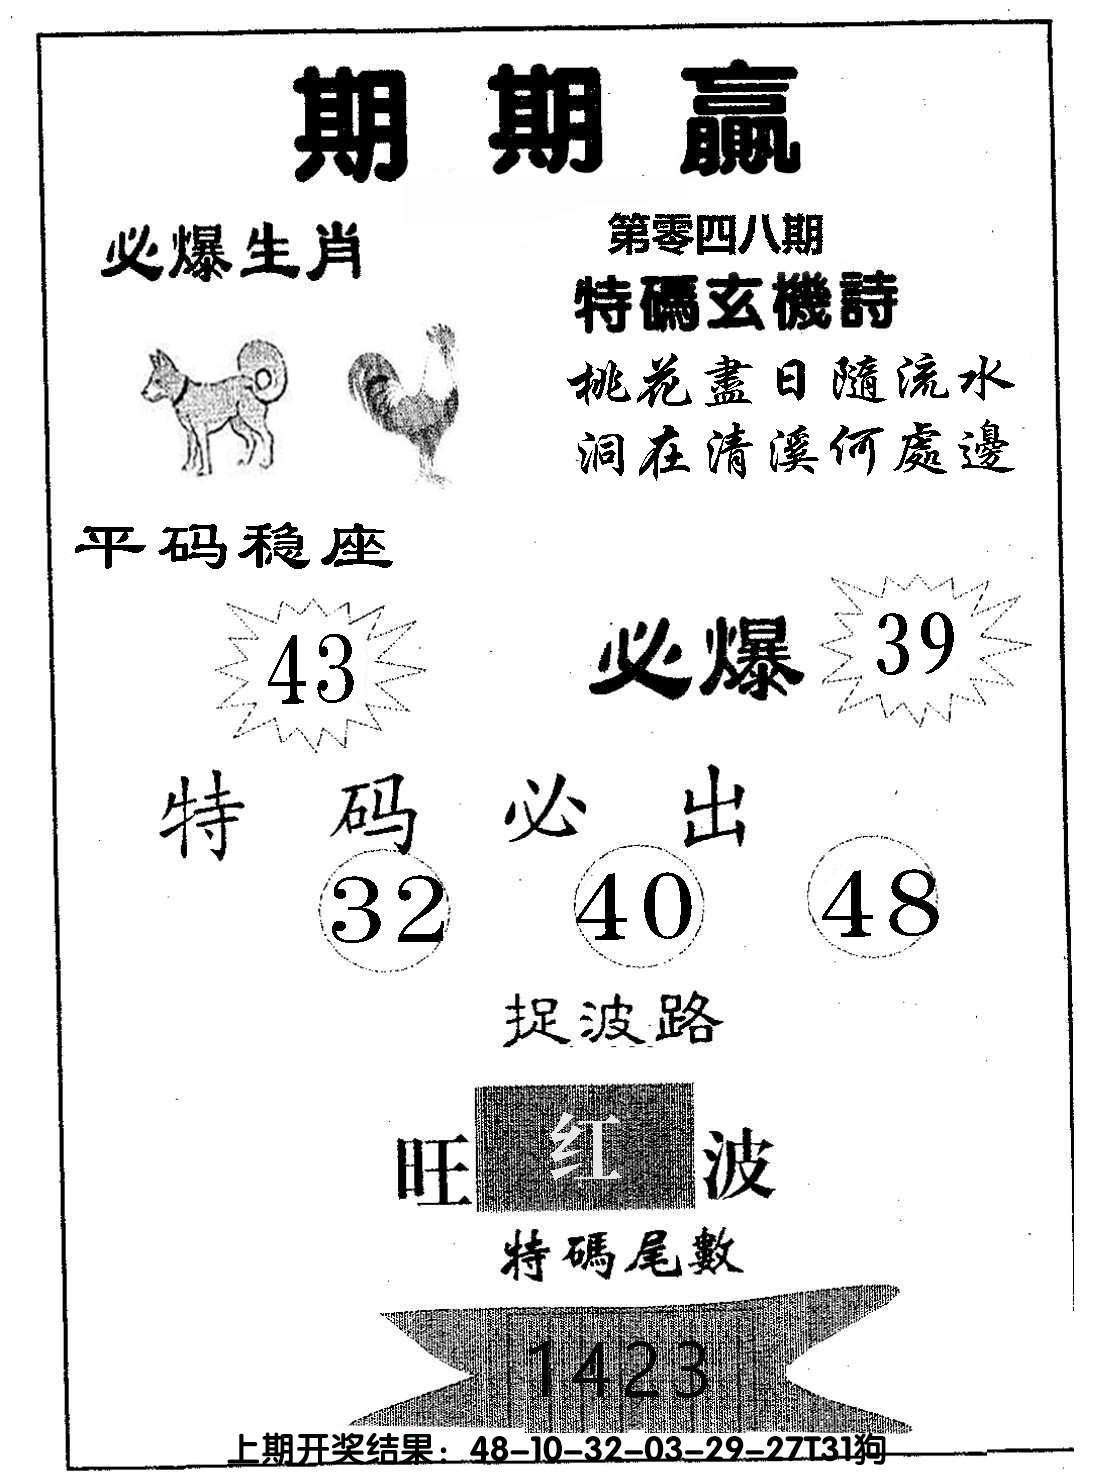 期期赢
第零四八期
必爆生肖
特碼玄機詩
桃花盡日隨流水
洞在清溪何處邊
平码稳座
43
必爆 39
特码必出
32 40 48
捉波路
旺 红 波
特碼尾數
1423
上期开奖结果：48-10-32-03-29-27T31狗